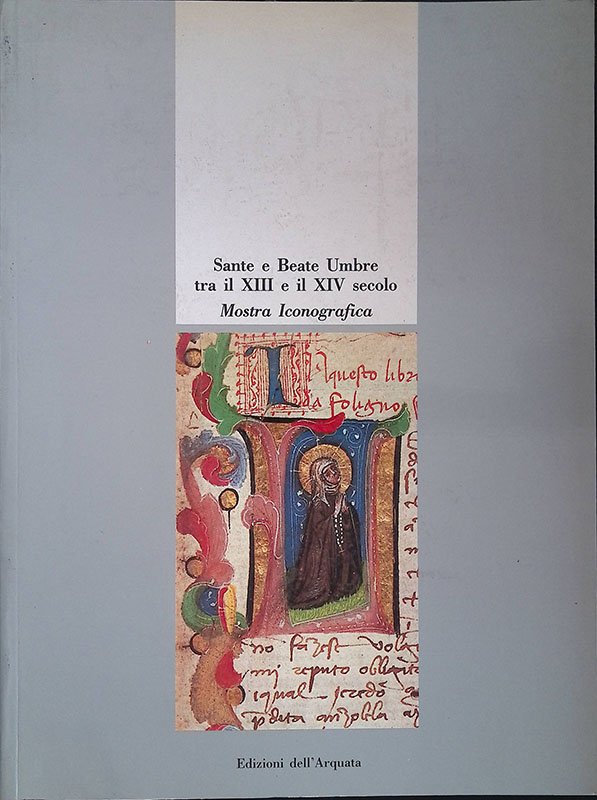 Sante e Beate Umbre
tra il XIII e il XIV secolo
Mostra Iconografica
I
questo libr
da foligno
no
mi reputo
iqual
Edizioni dell'Arquata